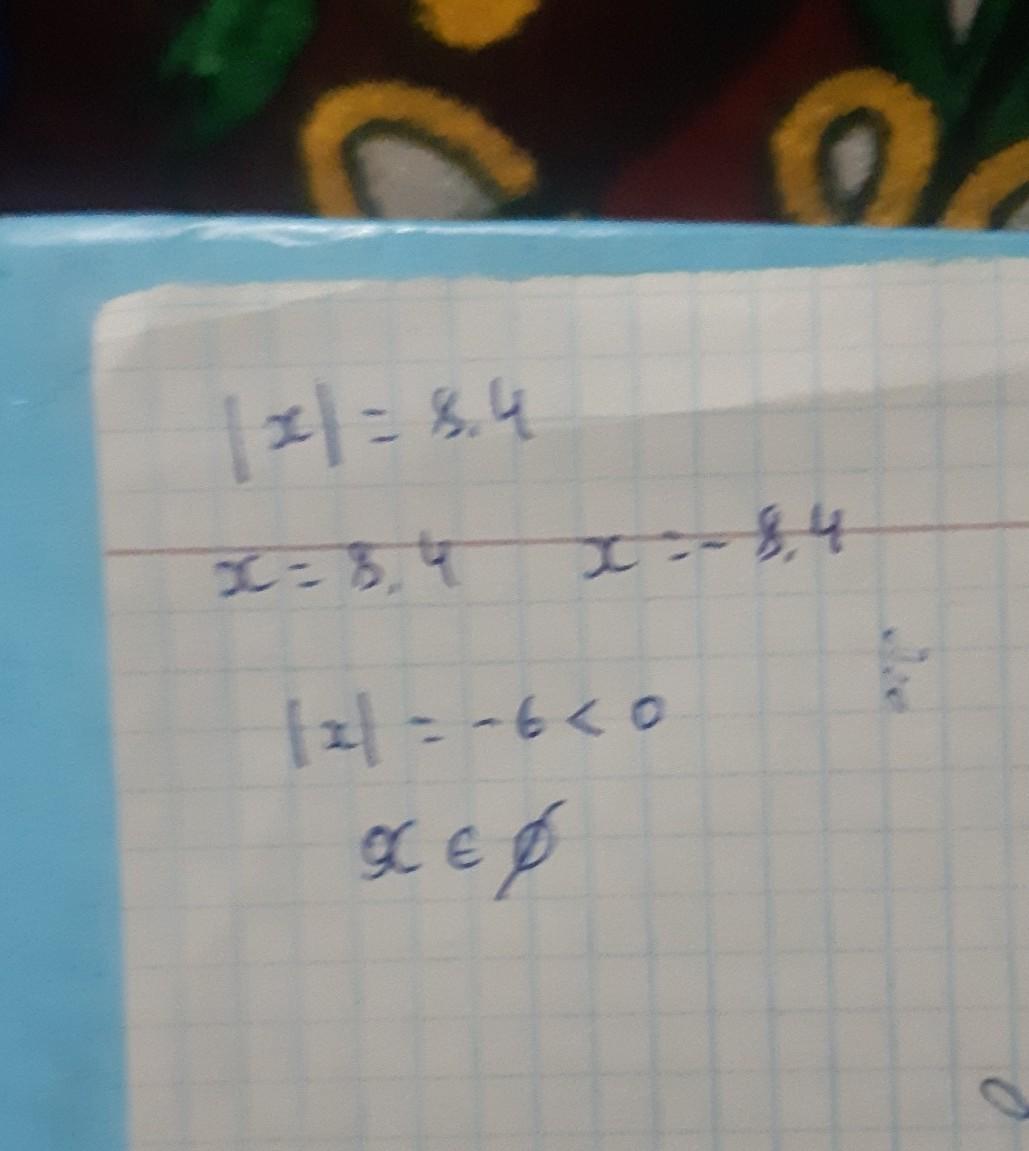 |x| = 8.4
x = 8.4 x = - 8.4
|x| = - 6 < 0
x ∈ ∅